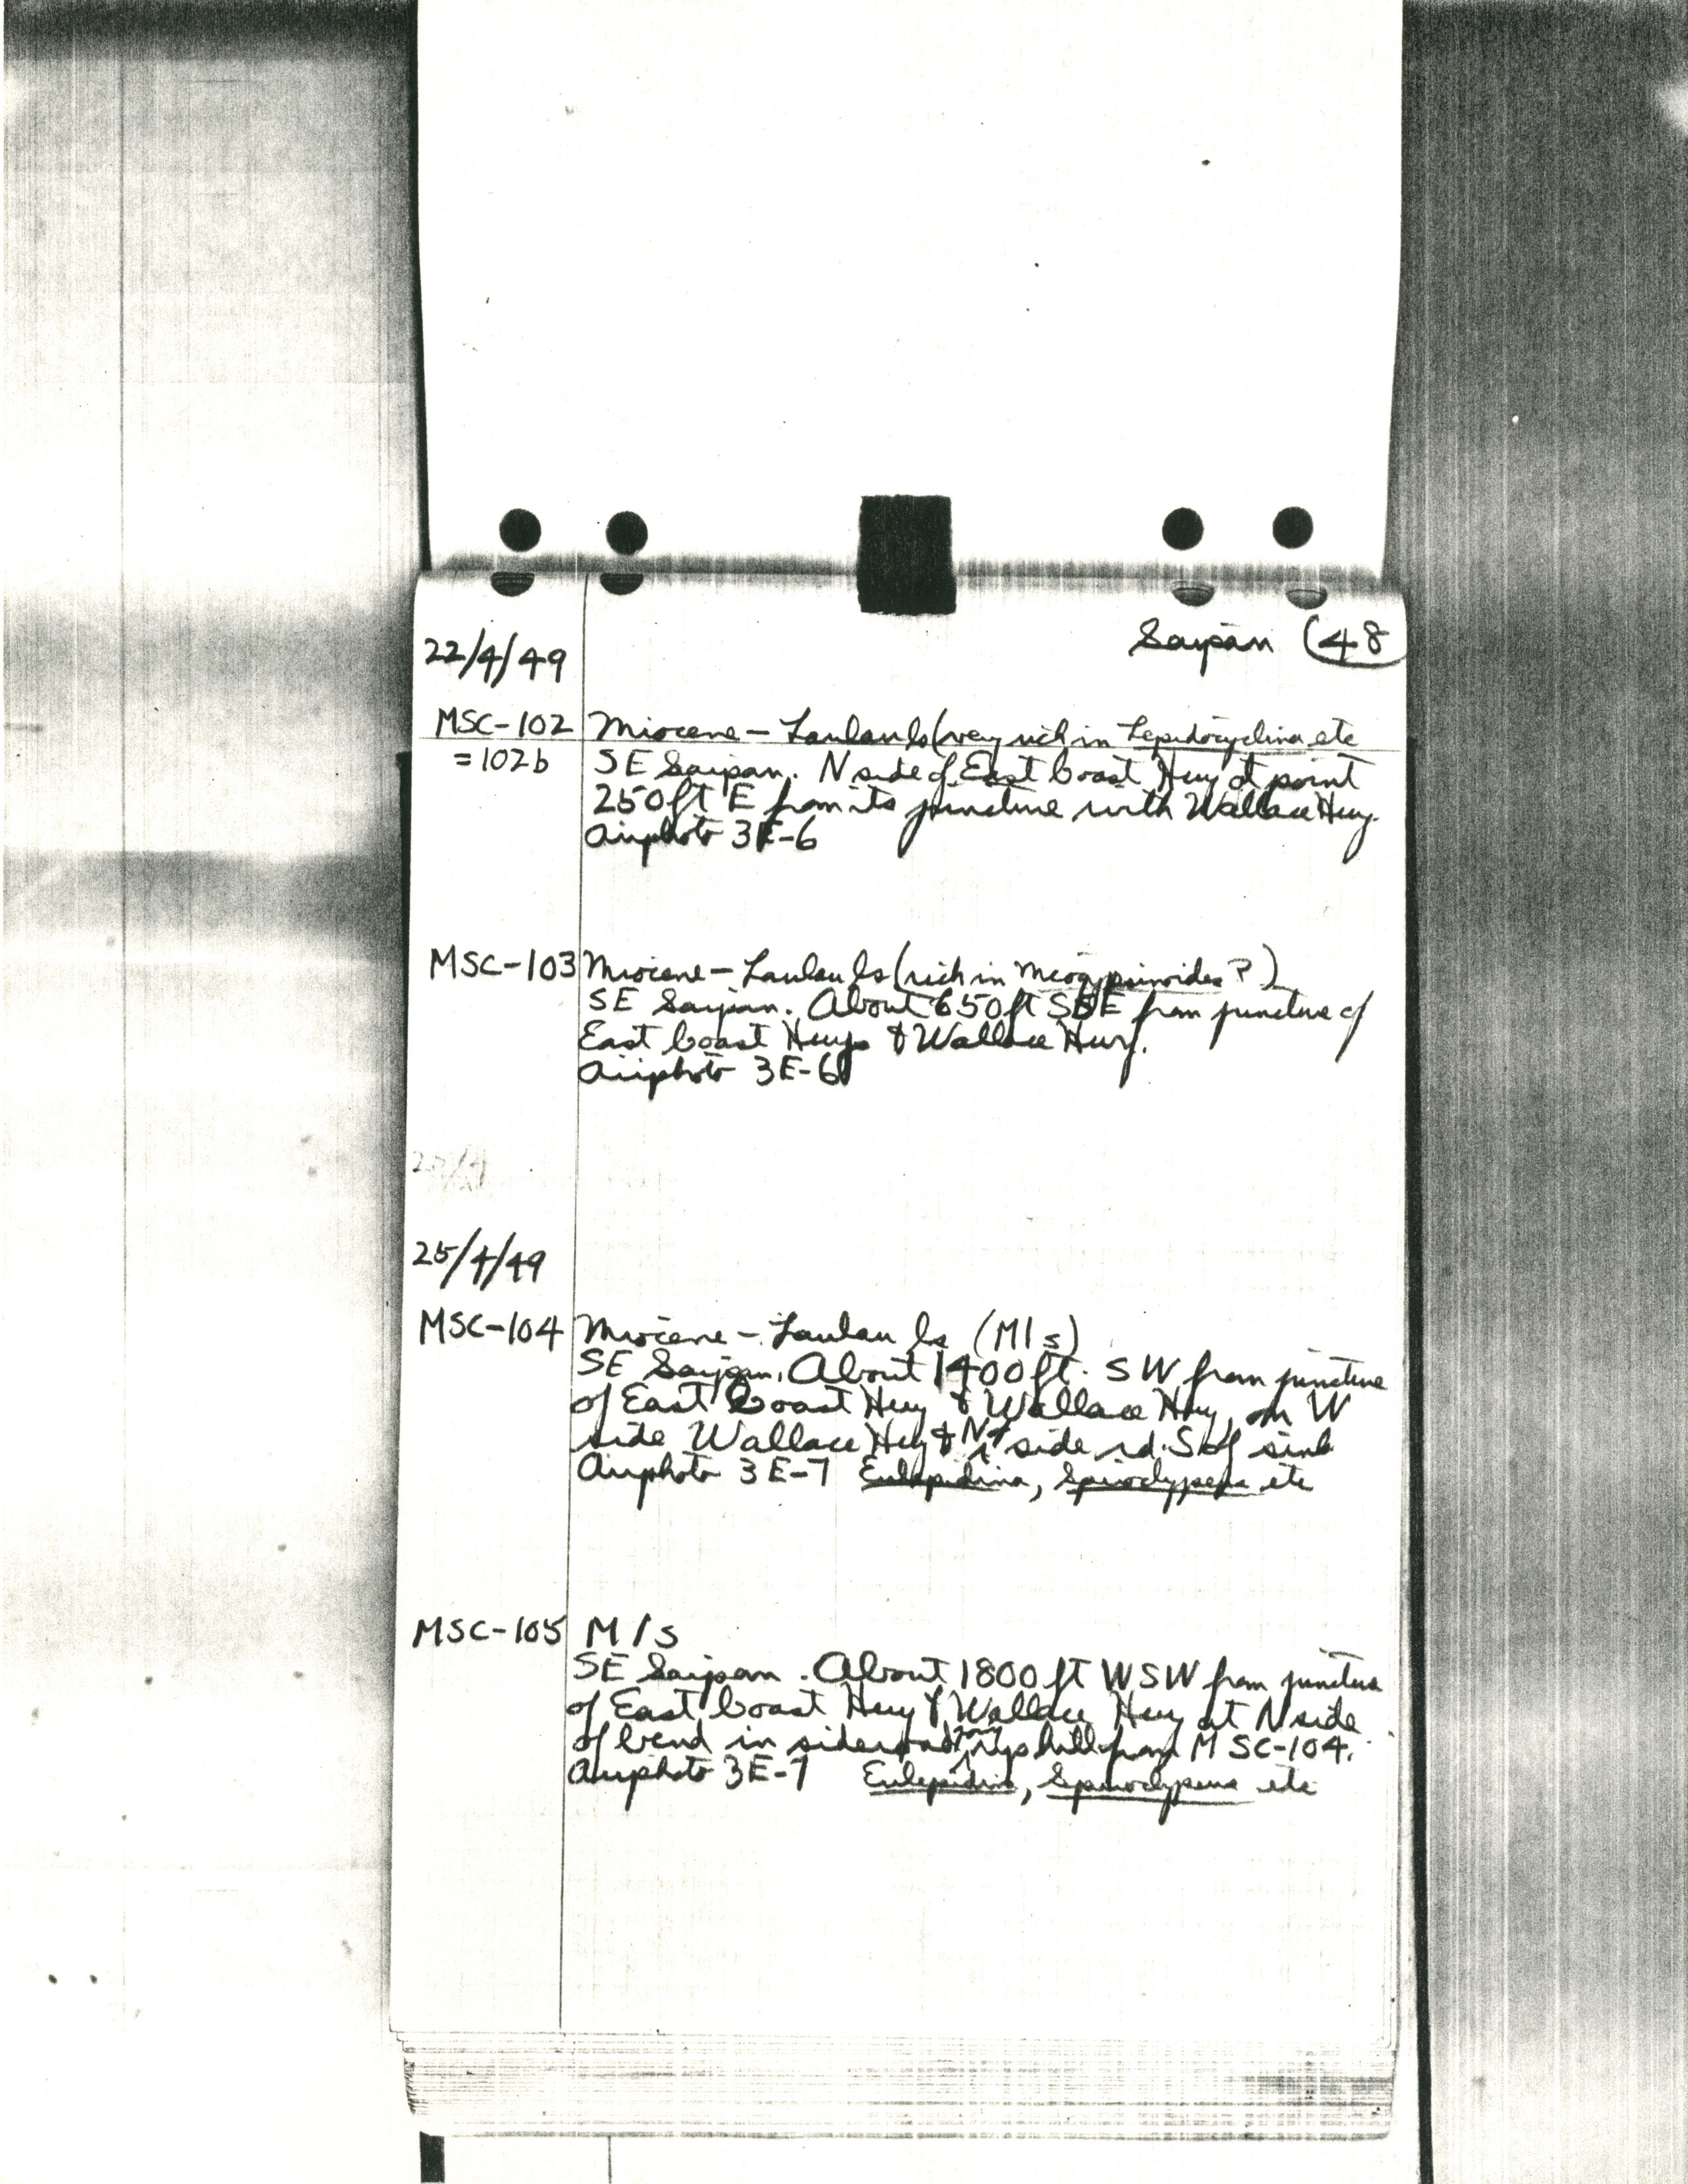 Saipan (48
22/4/49
MSC-102 Miocene - Laulau ls (very rich in Lepidocyclina etc
=102b SE Saipan. N side of East Coast Hwy at point
250 ft E from its juncture with Wallace Hwy.
Airphoto 3E-6
MSC-103 Miocene - Laulau ls (rich in Miogypsinoides?)
SE Saipan. About 650 ft SSE from juncture of
East Coast Hwy & Wallace Hwy.
Airphoto 3E-6
25/4
25/4/49
MSC-104 Miocene - Laulau ls (M/s)
SE Saipan. About 1400 ft. SW from juncture
of East Coast Hwy & Wallace Hwy, on W
side Wallace Hwy & N of side rd. S of sink
Airphoto 3E-7 Eulepidina, Spiroclypeus etc
MSC-105 M/s
SE Saipan. About 1800 ft WSW from juncture
of East Coast Hwy & Wallace Hwy at N side
of bend in sideroad up hill from MSC-104.
Airphoto 3E-7 Eulepidina, Spiroclypeus etc